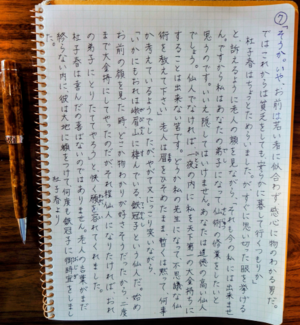 ⑦「そうか。いや、お前は若い者に似合わず感心に物のわかる男だ。
ではこれからは貧乏をしても、安らかに暮して行くつもりか。」
杜子春はちょいとためらいました。が、すぐに思い切った眼を挙げる
と、訴えるように老人の顔を見ながら、「それも今の私には出来ませ
ん。ですから私はあなたの弟子になって、仙術の修業をしたいと
思うのです。いいえ、隠してはいけません。あなたは道徳の高い仙人
でしょう。仙人でなければ、一夜の内に私を天下第一の大金持に
することは出来ない筈です。どうか私の先生になって、不思議な仙
術を教えて下さい。」老人は眉をひそめたまま、暫くは黙って、何事
か考えているようでしたが、やがて又にっこり笑いながら、
「いかにもおれは峨眉山に棲んでいる、鉄冠子という仙人だ。始め
お前の顔を見た時、どこか物わかりが好さそうだったから、二度
まで大金持にしてやったのだが、それ程仙人になりたければ、おれ
の弟子にとり立ててやろう。」と、快く願を容れてくれました。
杜子春は喜んだの喜ばないのではありません。老人の言葉がまだ
終らない内に、彼は大地に額をつけて、何度も鉄冠子に御時宜をしまし
た。
杜子春より